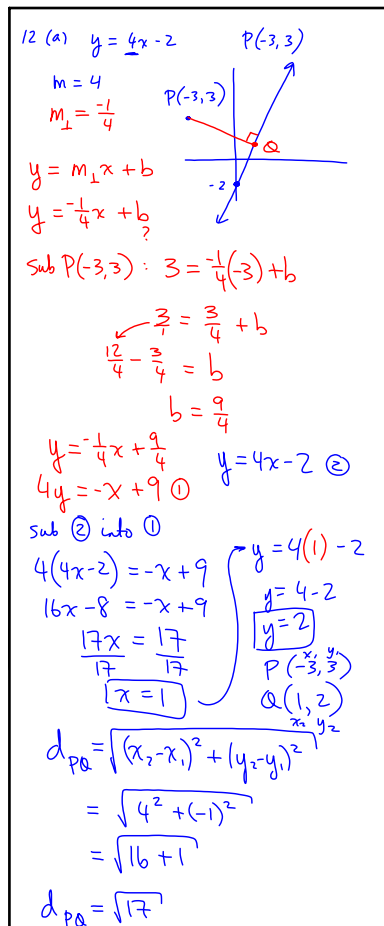 12 (a) y = 4x - 2
P(-3,3)
m = 4
P(-3,3)
m⊥ = -1/4
Q
-2
y = m⊥x + b
y = -1/4x + b
?
sub P(-3,3) : 3 = -1/4(-3) + b
3/1 = 3/4 + b
12/4 - 3/4 = b
b = 9/4
y = -1/4x + 9/4
4y = -x + 9 ①
y = 4x - 2 ②
sub ② into ①
4(4x-2) = -x + 9
16x - 8 = -x + 9
17x/17 = 17/17
x = 1
y = 4(1) - 2
y = 4 - 2
y = 2
x₁ y₁
P(-3,3)
Q(1,2)
x₂ y₂
d_PQ = √((x₂-x₁)² + (y₂-y₁)²)
= √(4² + (-1)²)
= √(16 + 1)
d_PQ = √17